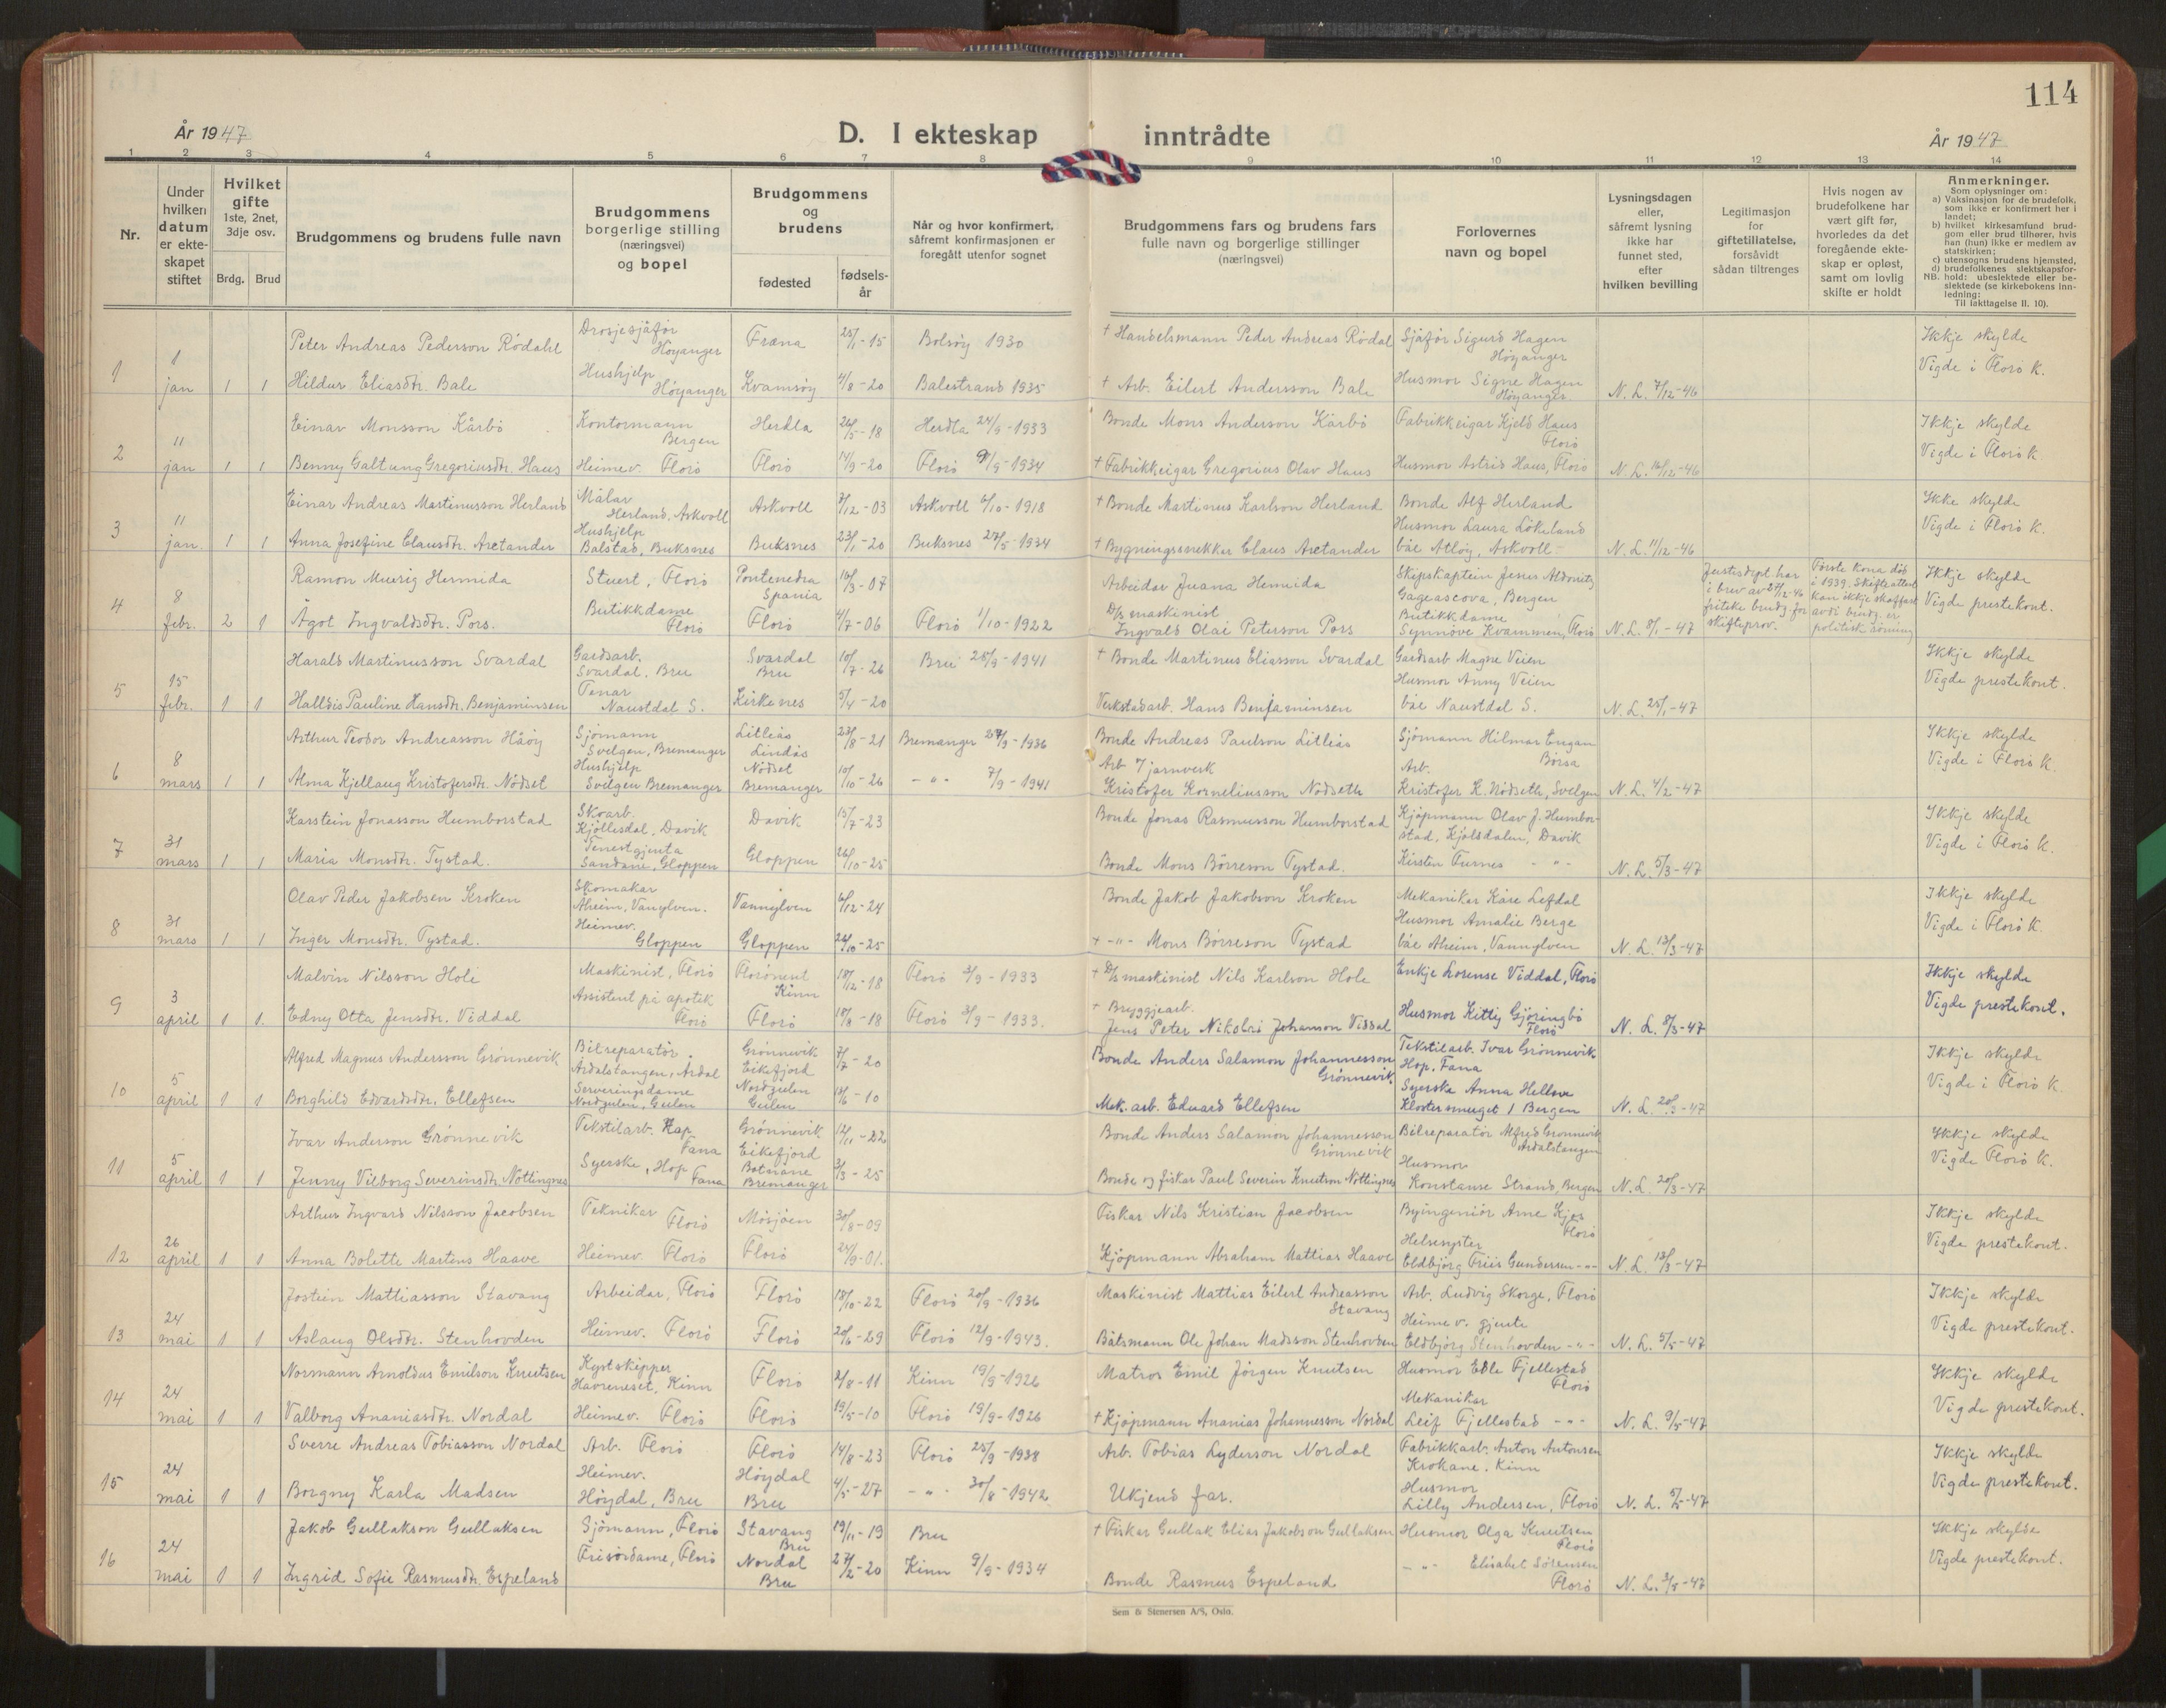 114
År 1947
D. I ekteskap inntrådte
År 1947
1 2 3 4 5 6 7 8 9 10 11 12 13 14
Nr.
Under hvilken datum er ekte-skapet stiftet
Hvilket gifte
1ste, 2net, 3dje osv.
Brdg. Brud
Brudgommens og brudens fulle navn
Brudgommens borgerlige stilling (næringsvei) og bopel
Brudgommens og brudens
fødested
fødsels-år
Når og hvor konfirmert, såfremt konfirmasjonen er foregått utenfor sognet
Brudgommens fars og brudens fars fulle navn og borgerlige stillinger (næringsvei)
Forlovernes navn og bopel
Lysningsdagen eller, såfremt lysning ikke har funnet sted, efter hvilken bevilling
Legitimasjon for giftetillatelse, forsåvidt sådan tiltrenges
Hvis nogen av brudefolkene har vært gift før, hvorledes da det foregående ekte-skap er opløst, samt om lovlig skifte er holdt
Anmerkninger.
Som oplysninger om:
a) Vaksinasjon for de brudefolk, som ikke er konfirmert her i landet;
b) hvilket kirkesamfund brud-gom eller brud tilhører, hvis han (hun) ikke er medlem av statskirken;
c) utensogns brudens hjemsted,
d) brudefolkenes slektskapsfor-hold: ubeslektede eller be-slektede (se kirkebokens inn-ledning:
NB.
Til iakttagelse II. 10).
1 1 jan 1 1
Peter Andreas Pederson Rødahl Drosjesjåfør Høyanger Fræna 25/1-15 Bolsøy 1930 + Handelsmann Peder Andreas Rødal Sjåfør Sigurd Hagen Høyanger Ikkje skylde
Hildur Eliasdtr. Bale Hushjelp Høyanger Kvamsøy 4/8-20 Balestrand 1935 + Arb. Eilert Andersson Bale Husmor Signe Hagen Høyanger. N. L. 7/12-46 Vigde i Florø K.
2 11 jan 1 1
Einar Monsson Kårbø Kontormann Bergen Herdla 26/5-18 Herdla 24/9-1933 Bonde Mons Anderson Kårbø Fabrikkeigar Kjeld Haus Florø Ikkje skylde
Benny Galtung Gregoriusdtr. Haus Heimev. Florø Florø 14/9-20 Florø 9/9-1934 + Fabrikkeigar Gregorius Olav Haus Husmor Astrid Haus, Florø N. L. 16/12-46 Vigde i Florø K.
3 11 jan. 1 1
Einar Andreas Martinusson Herland Målar Herland, Askvoll Askvoll 7/12-03 Askvoll 6/10-1918 + Bonde Martinus Karlson Herland Bonde Alf Herland Ikke skylde
Husmor Laura Løkeland
Anna Josefine Clausdtr. Aretander Hushjelp Balstad, Buksnes Buksnes 23/1-20 Buksnes 27/5-1934 + Bygningssnekker Claus Aretander båe Atløy, Askvoll- N. L. 11/12-46 Vigde i Florø K.
4 8 febr. 2 1
Ramon Muerig Hermida Stuert, Florø Pontenedra Spania 16/3-07 Arbeidar Juana Hemida Skipskaptein Jesus Gageascova, Bergen Justisdept. har i brev av 27/12-46 friteke brudg. for skifteprov. Første kona død i 1939. Skifteattest kan ikkje skaffast avdi brudg. er politisk Ikkje skylde
Ågot Ingvaldsdtr. Pors. Butikkdame Florø Florø 4/7-06 Florø 1/10-1922 D/s maskinist Ingvald Olai Peterson Pors Butikkdame Synnøve Kvammen, Florø N. L. 8/1-47 Vigde prestekont.
5 15 febr. 1 1
Harald Martinusson Svardal Gardsarb. Svardal, Bru Svardal Bru 10/7-26 Bru 28/9-1941 + Bonde Martinus Eliasson Svardal Gardsarb Magne Veien Ikkje skylde
Husmor Anny Veien
Halldis Pauline Hansdtr. Benjaminsen Tenar Naustdal S. Kirkenes 5/4-20 Verkstadarb. Hans Benjaminsen båe Naustdal S. N. L. 25/1-47 Vigde prestekont.
6 8 mars 1 1
Arthur Teodor Andreasson Håøy Sjømann Svelgen, Bremanger Litleås Lindås 23/8-21 Bremanger 27/9-1936 Bonde Andreas Paulson Litleås Sjømann Hilmar Engan Børsa Ikkje skylde
Alma Kjellaug Kristofersdtr. Nødset Hushjelp Svelgen Bremanger Nødset Bremanger 10/10-26 -"- 7/9-1941 Arb i jarnverk Kristofer Korneliusson Nødseth Arb. Kristofer K. Nødseth, Svelgen N. L. 4/2-47 Vigde i Florø K.
7 31 mars 1 1
Karstein Jonasson Humborstad Skoarb. Kjøllesdal, Davik Davik 15/7-23 Bonde Jonas Rasmusson Humborstad Kjøpmann Olav J. Humbor-stad, Kjølsdalen, Davik Ikkje skylde
Maria Monsdtr. Tystad. Tenestgjenta Sandane, Gloppen Gloppen 26/10-25 Bonde Mons Børreson Tystad. Kirsten Furnes -"- N. L. 5/3-47 Vigde i Florø K.
8 31 mars 1 1
Olav Peder Jakobsen Kroken Skomakar Åheim, Vanylven. Vannylven 6/12-24 Bonde Jakob Jakobson Kroken Mekanikar Kåre Lefdal Ikkje skylde
Husmor Amalie Berge
Inger Monsdtr. Tystad. Heimev. Gloppen Gloppen 26/10-25 + -"- Mons Børreson Tystad båe Åheim, Vannylven N. L. 13/3-47 Vigde i Florø K.
9 3 april 1 1.
Malvin Nilsson Hole Maskinist, Florø Kinn 18/12-18 Florø 3/9-1933 + D/s maskinist Nils Karlson Hole Enkje Lorense Viddal, Florø Ikkje skylde
Edny Otta Jensdtr. Viddal Assistent på apotek Florø Florø 18/8-18 Florø 3/9-1933. + Bryggjearb. Jens Peter Nikolai Johanson Viddal Husmor Kitty Gjøringbø Florø N. L. 8/3-47 Vigde prestekont.
10 5 april 1 1
Alfred Magnus Andersson Grønnevik Bilreparatør. Årdalstangen, Årdal Grønnevik Eikefjord 7/7-20 Bonde Anders Salamon Johannesson Grønnevik Tekstilarb. Ivar Grønnevik Hop, Fana Ikkje skylde
Borghild Edvardsdtr. Ellefsen Serveringsdame Nordgulen, Gulen Nordgulen Gulen 13/6-10 Mek. arb. Edvard Ellefsen Syerske Anna Klostersmuget 1 Bergen N. L. 20/3-47 Vigde i Florø K.
11 5 april 1 1
Ivar Anderson Grønnevik Tekstilarb. Hop Fana Grønnevik Eikefjord 12/11-22 Bonde Anders Salamon Johannesson Grønnevik Bilreparatør Alfred Grønnevik Årdalstangen Ikkje skylde
Jenny Vilborg Severinsdtr. Nøttingnes Syerske, Hop Fana Botnane Bremanger 3/3-25 Bonde og fiskar Paul Severin Knutson Nøttingnes Husmor Konstanse Strand, Bergen N. L. 20/3-47 Vigde Florø K.
12 26 april 1 1
Arthur Ingvard Nilsson Jacobsen Teknikar Florø Mosjøen 30/8-09 Fiskar Nils Kristian Jacobsen Byingeniør Arne Kjos Florø Ikkje skylde
Anna Bolette Martens Haave Heimev. Florø Florø 24/9-01. Kjøpmann Abraham Mattias Haave Helsesyster Eldbjørg Friis Gundersen -"- N. L. 13/3-47 Vigde prestekont.
13 24 mai 1 1
Jostein Mattiasson Stavang Arbeidar, Florø Florø 18/10-22 Florø 20/9-1936 Maskinist Mattias Eilert Andreasson Stavang Arb. Ludvig Skorge, Florø Ikkje skylde
Aslaug Olsdtr. Stenhovden Heimev. Florø Florø 20/6-29 Florø 12/9-1943. Båtsmann Ole Johan Madsson Stenhovden Heimev. gjente Eldbjørg Stenhovden -"- N. L. 5/5-47 Vigde prestekont.
14 24 mai 1 1
Normann Arnoldus Emilson Knutsen Kystskipper Havreneset, Kinn Florø 2/8-11 Kinn 19/9-1926 Matros Emil Jørgen Knutsen Husmor Edle Fjellestad Florø Ikkje skylde
Valborg Ananiasdtr. Nordal Heimev. Florø Florø 19/5-10 Florø 19/9-1926 + Kjøpmann Ananias Johannesson Nordal Mekanikar Leif Fjellestad -"- N. L. 9/5-47 Vigde prestekont.
15 24 mai 1 1
Sverre Andreas Tobiasson Nordal Arb. Florø Florø 14/8-23 Florø 25/9-1938 Arb. Tobias Lyderson Nordal Fabrikkarb. Anton Antonsen Krokane, Kinn Ikkje skylde
Borgny Karla Madsen Heimev. Høydal, Bru Høydal Bru 4/5-27 -"- 30/8-1942 Ukjend far. Husmor Lilly Andersen, Florø N. L. 5/5-47 Vigde prestekont.
16 24 mai 1 1
Jakob Gullakson Gullaksen Sjømann, Florø Stavang Bru 19/11-19 Bru + Fiskar Gullak Elias Jakobson Gullaksen Husmor Olga Knutsen Florø Ikkje skylde
Ingrid Sofie Rasmusdtr. Espeland Frisørdame, Florø Nordal Bru 27/2-20 Kinn 9/9-1934 Bonde Rasmus Espeland -"- Elisabet Sørensen Florø N. L. 3/5-47 Vigde prestekont.
Sem & Stenersen A/S, Oslo.